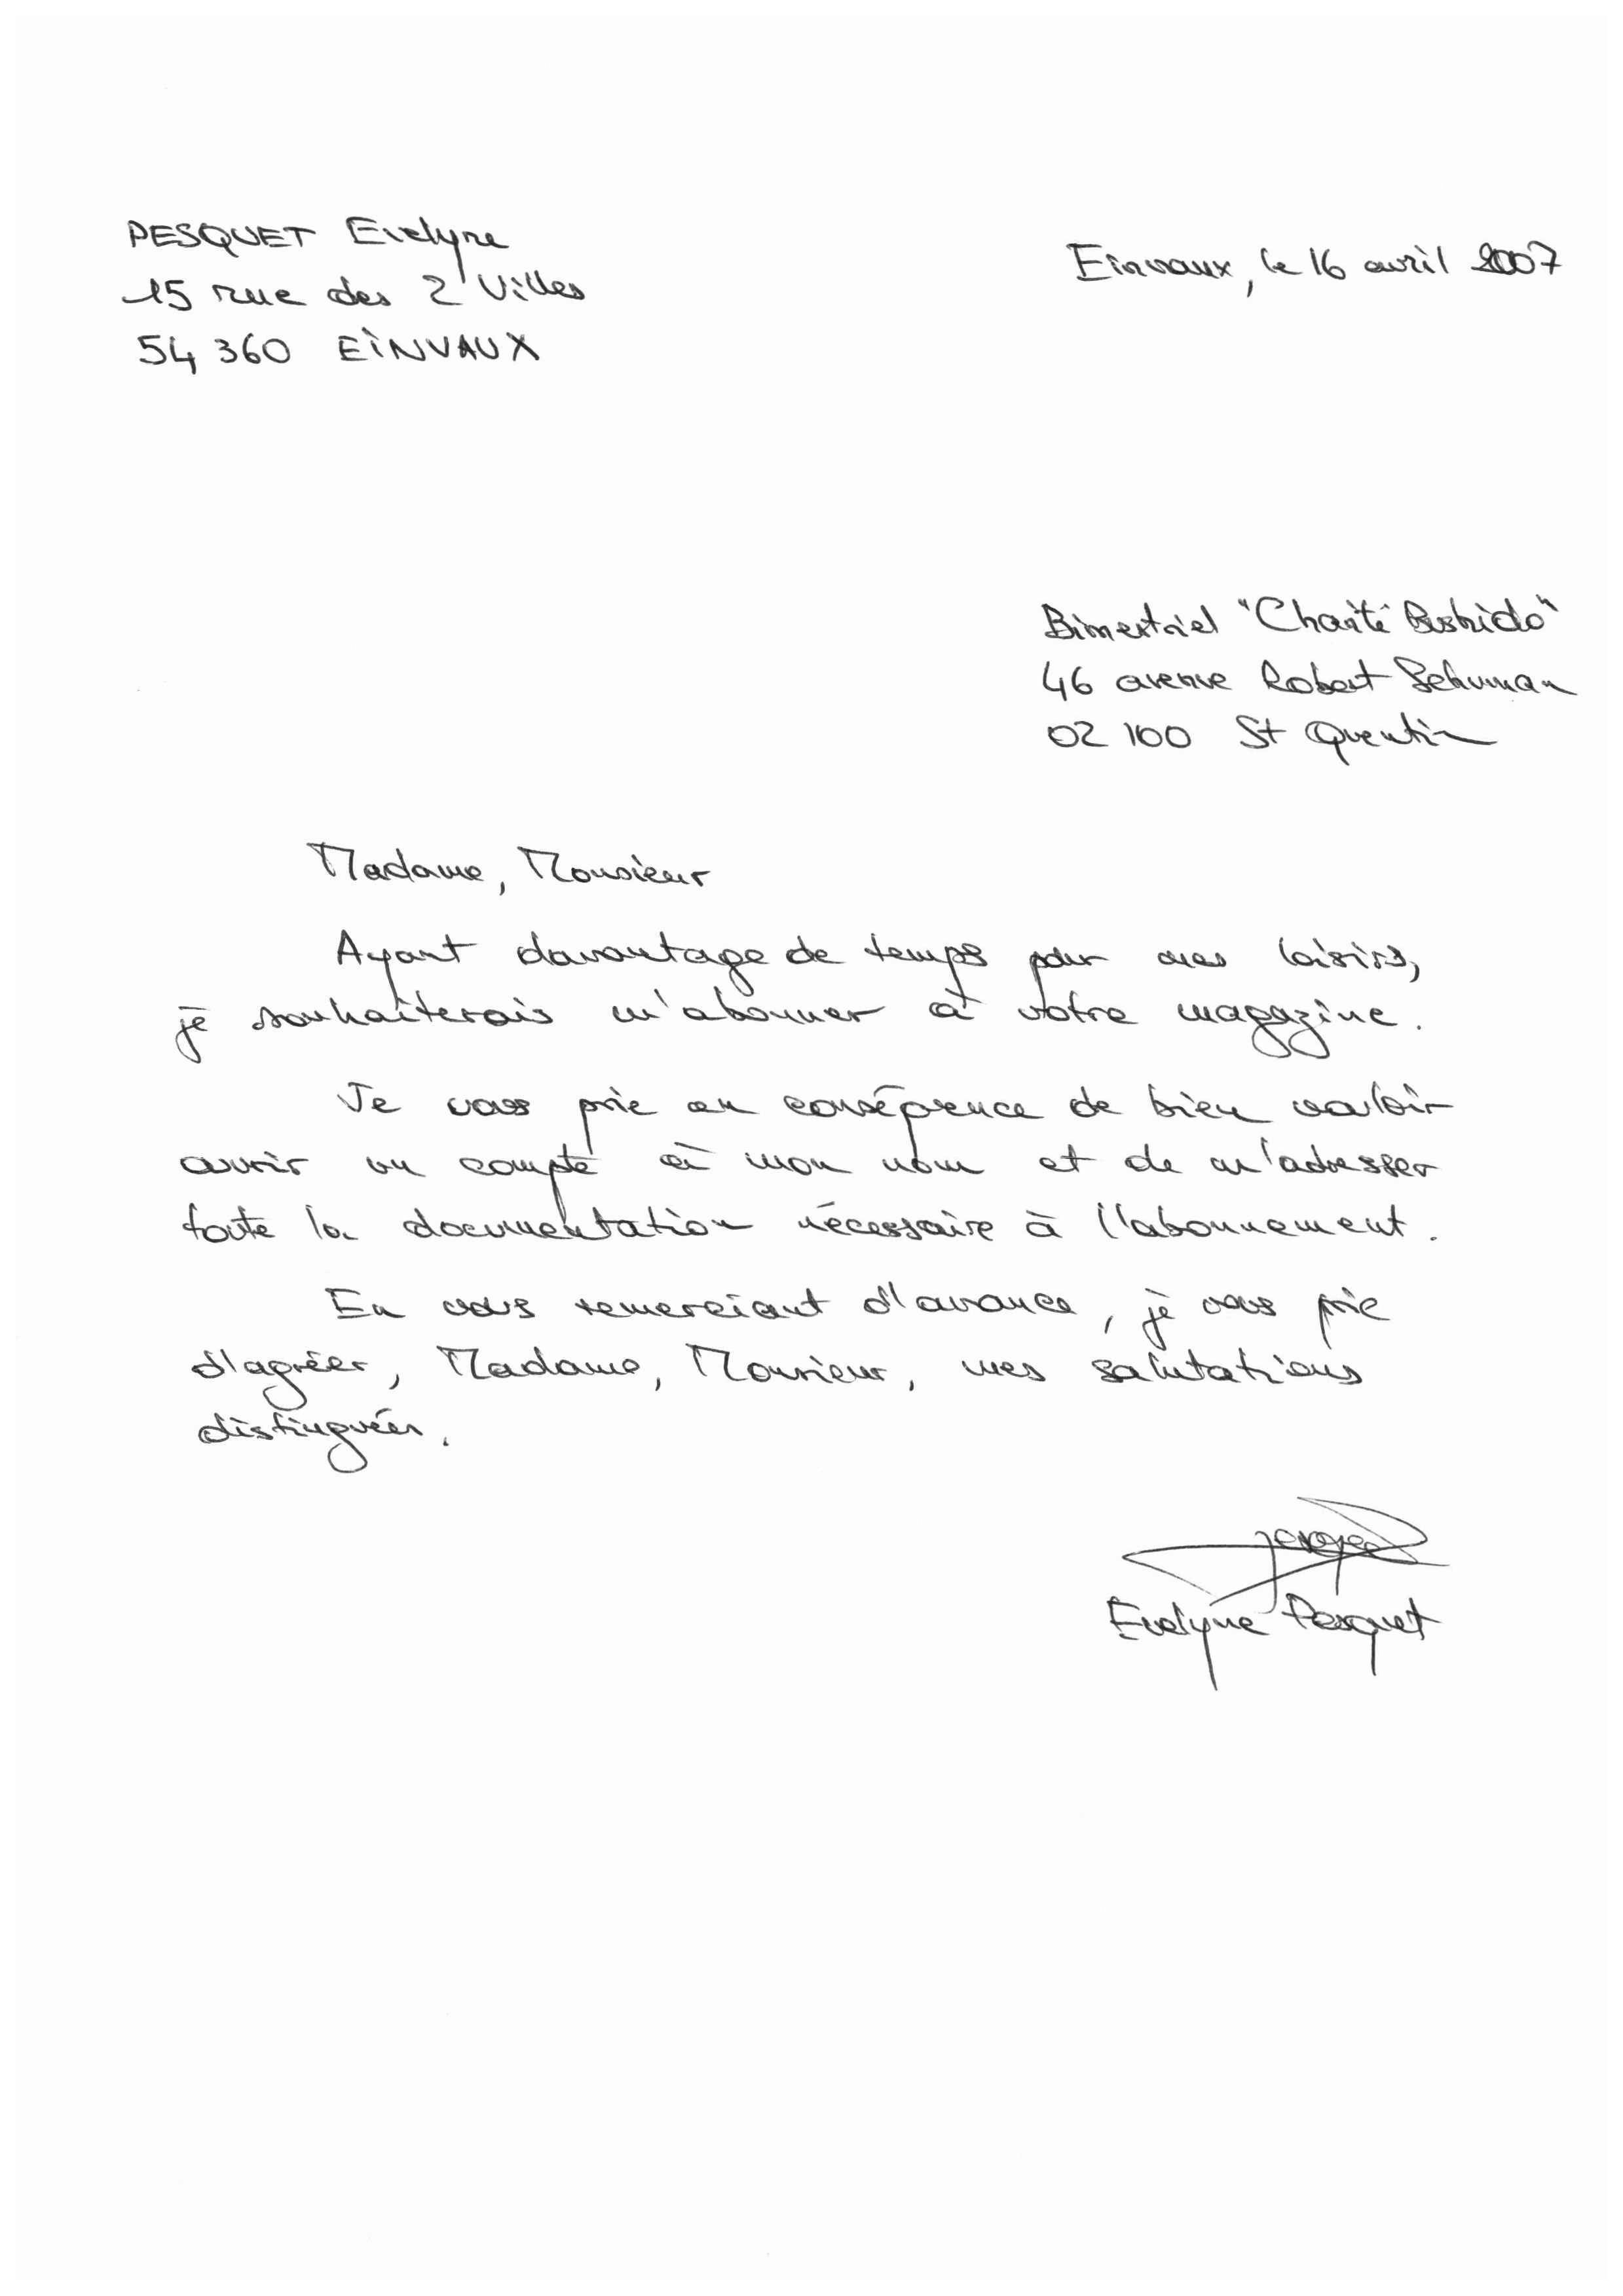 PESQUET Evelyne
15 rue des 2 Villes
54 360 EINVAUX
Einvaux, le 16 avril 2007
Bimestriel "Charité Bushido"
46 avenue Robert Schuman
02 100 St Quentin
Madame, Monsieur
Ayant davantage de temps pour mes loisirs,
je souhaiterais m'abonner à votre magazine.
Je vous prie en conséquence de bien vouloir
ouvrir un compte à mon nom et de m'adresser
toute la documentation nécessaire à l'abonnement.
En vous remerciant d'avance, je vous prie
d'agréer, Madame, Monsieur, mes salutations
distinguées.
Evelyne Pesquet